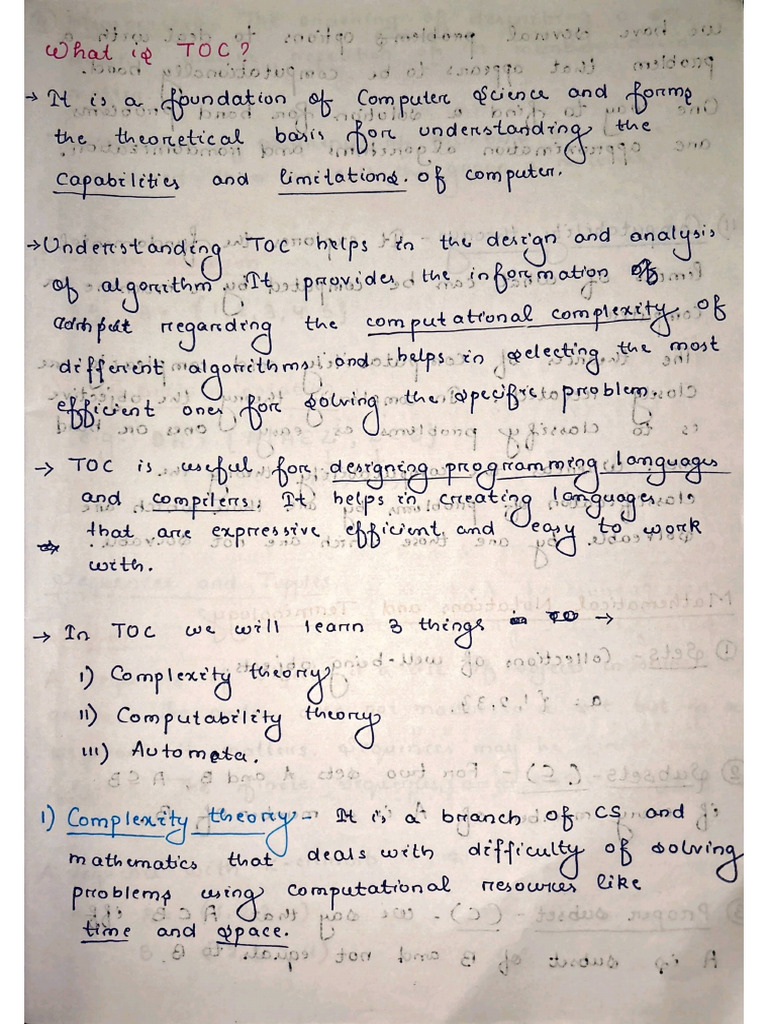 What is TOC?
→ It is a foundation of Computer Science and forms
the theoretical basis for understanding the
capabilities and limitations. of computer.
→ Understanding TOC helps in the design and analysis
of algorithm. It provides the information
regarding the computational complexity of
different algorithms and helps in selecting the most
efficient ones for solving the specific problem.
→ TOC is useful for designing programming languages
and compilers. It helps in creating languages
that are expressive efficient and easy to work
with.
→ In TOC we will learn 3 things →
i) Complexity theory
ii) Computability theory
iii) Automata.
1) Complexity theory - It is a branch of CS and
mathematics that deals with difficulty of solving
problems using computational resources like
time and space.